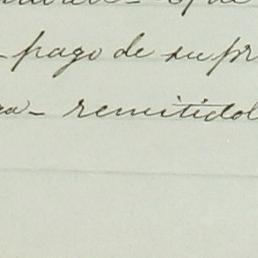 pago de su pr
remitidol